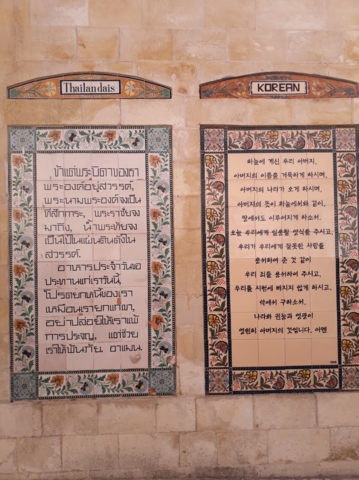 Thailandais
ข้าแต่พระบิดาของเรา
พระองค์อยู่สวรรค์,
พระนามพระองค์จงเป็น
ที่สักการะ, พระราชัยจง
มาถึง, น้ำพระทัยจง
เป็นไปในแผ่นดินดั่งใน
สวรรค์.
อาหารประจำวันขอ
ประทานแก่เราวันนี้,
โปรดยกหนี้ของเรา
เหมือนเรายกแก่เขา,
อย่าปล่อยให้เราแพ้
การประจญ, แต่ช่วย
เราให้พ้นภัย. อาแมน.
KOREAN
하늘에 계신 우리 아버지,
아버지의 이름를 거룩하게 하시며,
아버지의 나라가 오게 하시며,
아버지의 뜻이 하늘에서와 같이,
땅에서도 이루어지게 하소서.
오늘 우리에게 일용할 양식을 주시고,
우리가 우리에게 잘못한 사람을
용서하여 준 것 같이
우리 죄를 용서하여 주시고,
우리를 시험에 빠지지 않게 하시고,
악에서 구하소서.
나라와 권능과 영광이
영원히 아버지의 것입니다. 아멘